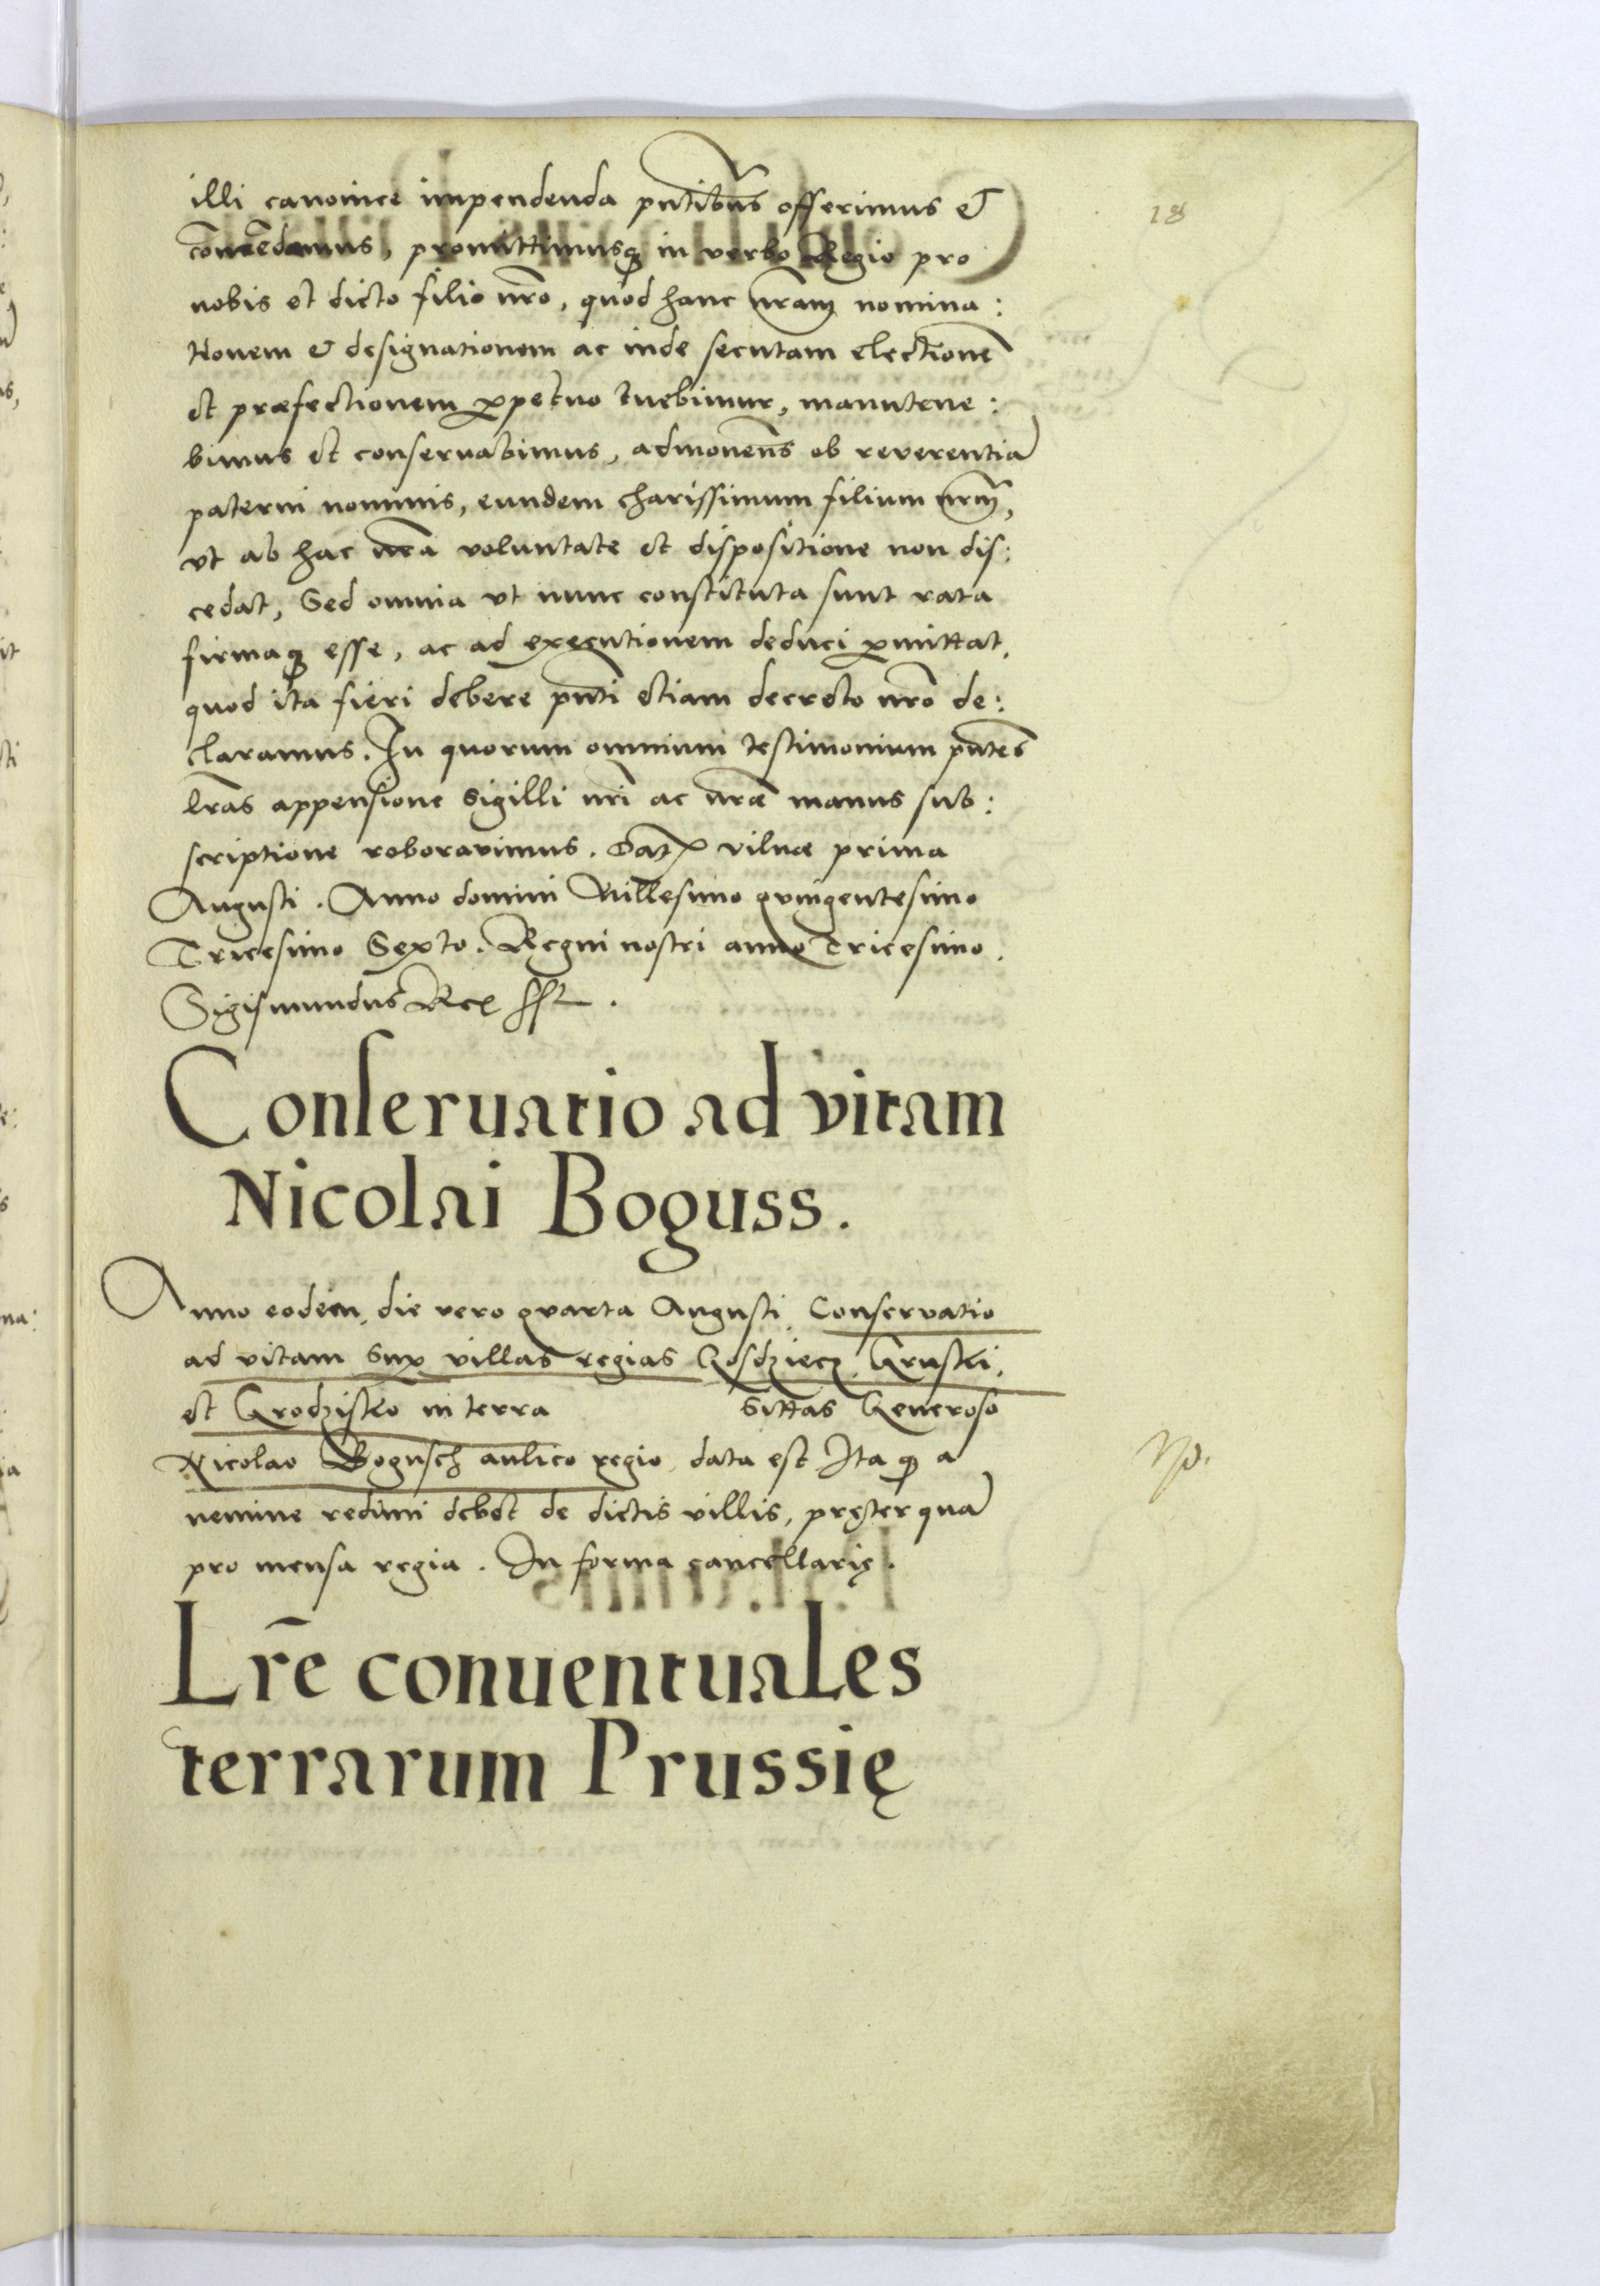 18
illi canonice impendenda pn̄tibus offerimus &
cōmēdamus, promittimusq̃ in verbo Regio pro
nobis et dicto filio nr̄o, quod hanc nr̄am nomina:
tionem & designationem ac inde secutam electionē
et præfectionem ꝑpetuo tuebimur, manutene:
bimus et conservabimus, admonen̄s ob reverentiā
paterni nominis, eundem charissimum filium nr̄m,
ut ab hac nr̄a voluntate et dispositione non dis:
cedat, Sed omnia ut nunc constituta sunt rata
firmaq̃ esse, ac ad executionem deduci ꝑmittat,
quod ita fieri debere pn̄ti etiam decreto nr̄o de:
claramus. In quorum omnium testimonium pn̄tes
lr̄as appensione Sigilli nr̄i ac nr̄æ manus sub:
scriptione roboravimus. Dat Vilnæ prima
Augusti. Anno domini Millesimo quingentesimo
Tricesimo Sexto. Regni nostri anno Tricesimo.
Sigismundus Rex sst.
Conseruatio ad vitam
Nicolai Boguss.
Anno eodem, die vero quarta Augusti, Conservatio
ad vitam Sup villas regias Gosdziecz, Gruski,
et Grodzisko in terra sittas Generoso
Nicolao Bogusch aulico regio, data est Ita q̃ a
nemine redimi debet de dictis villis, pręterquā
pro mensa regia. In forma cancellarię.
Lr̄e conuentuales
terrarum Prussię